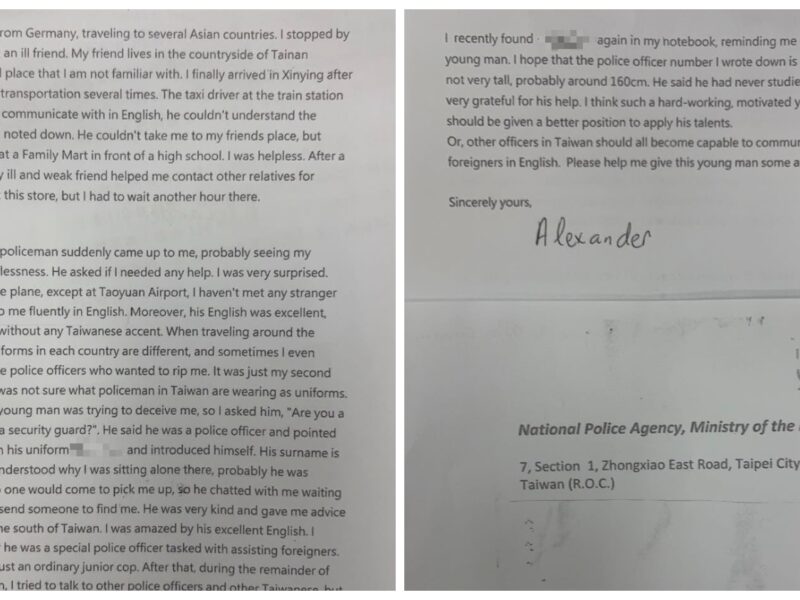 rom Germany, traveling to several Asian countries. I stopped by
an ill friend. My friend lives in the countryside of Tainan
l place that I am not familiar with. I finally arrived in Xinying after
transportation several times. The taxi driver at the train station
communicate with in English, he couldn't understand the
noted down. He couldn't take me to my friends place, but
at a Family Mart in front of a high school. I was helpless. After a
y ill and weak friend helped me contact other relatives for
this store, but I had to wait another hour there.
policeman suddenly came up to me, probably seeing my
lessness. He asked if I needed any help. I was very surprised.
e plane, except at Taoyuan Airport, I haven't met any stranger
o me fluently in English. Moreover, his English was excellent,
without any Taiwanese accent. When traveling around the
iforms in each country are different, and sometimes I even
e police officers who wanted to rip me. It was just my second
was not sure what policeman in Taiwan are wearing as uniforms.
young man was trying to deceive me, so I asked him, "Are you a
a security guard?". He said he was a police officer and pointed
n his uniform and introduced himself. His surname is
nderstood why I was sitting alone there, probably he was
o one would come to pick me up, so he chatted with me waiting
send someone to find me. He was very kind and gave me advice
he south of Taiwan. I was amazed by his excellent English. I
r he was a special police officer tasked with assisting foreigners.
ust an ordinary junior cop. After that, during the remainder of
n, I tried to talk to other police officers and other Taiwanese, but
I recently found again in my notebook, reminding me
young man. I hope that the police officer number I wrote down is
not very tall, probably around 160cm. He said he had never studie
very grateful for his help. I think such a hard-working, motivated y
should be given a better position to apply his talents.
Or, other officers in Taiwan should all become capable to commun
foreigners in English. Please help me give this young man some a
Sincerely yours,
Alexander
National Police Agency, Ministry of the
7, Section 1, Zhongxiao East Road, Taipei City
Taiwan (R.O.C.)